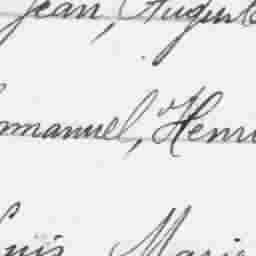 Jean, Auguste
Emmanuel, Henri
Louis Marie